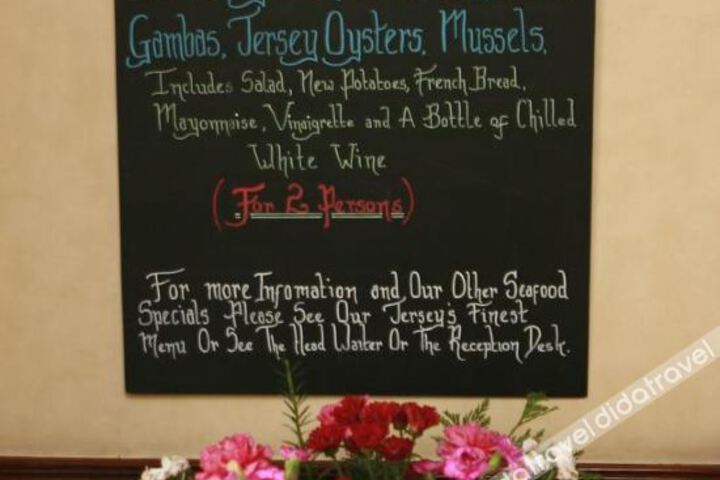 Gambas, Jersey Oysters, Mussels,
Includes Salad, New Potatoes, French Bread,
Mayonnaise, Vinaigrette and A Bottle of Chilled
White Wine
(For 2 Persons)
For more Infomation and Our Other Seafood
Specials Please See Our Jersey's Finest
Menu Or See The Head Waiter Or The Reception Desk.
didatravel didatravel